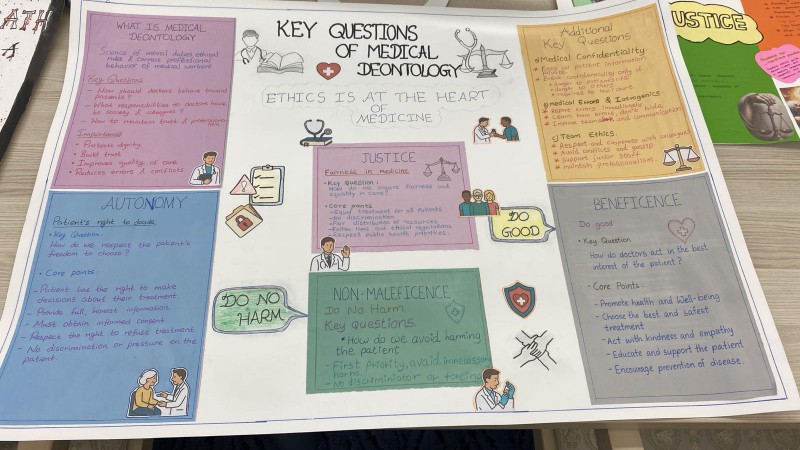 KEY QUESTIONS
OF MEDICAL
DEONTOLOGY
ETHICS IS AT THE HEART
OF
MEDICINE
WHAT IS MEDICAL
DEONTOLOGY
Science of moral duties, ethical
rules & correct professional
behavior of medical workers
Key Questions
- How should doctors behave toward
patients?
- What responsibilities do doctors have
to society & colleagues?
- How to maintain trust &
Importance
- Protects dignity
- Build trust
- Improves quality of care
- Reduces errors & conflicts
AUTONOMY
Patient's right to decide
• Key Question
How do we respect the patient's
freedom to choose?
• Core points
- Patient has the right to make
decisions about their treatment
- Provide full, honest information.
- Must obtain informed consent
- Respect the right to refuse treatment
- No discrimination or pressure on the
patient.
JUSTICE
Fairness in medicine
• Key Question:
How do we ensure fairness and
equality in care?
• Core points
- Equal treatment for all patients
- No discrimination
- Fair distribution of resources
- Follow laws and ethical regulations
- Respect public health priorities.
DO NO
HARM
NON-MALEFICENCE
Do No Harm
Key questions
• How do we avoid harming
the patient
- First priority, avoid
harms.
- No
DO
GOOD
Additional
Key Questions
a) Medical Confidentiality
Keep all patient information
private
Break confidentiality only if
b) Medical Errors & Iatrogenics
Report errors immediately
Learn from errors, don't hide
Improve and communication
c) Team Ethics.
Respect and cooperate with colleagues
Avoid conflicts and gossip
Support junior staff
maintain professionalism.
BENEFICENCE
Do good
• Key Question
How do doctors act in the best
interest of the patient?
• Core Points:
- Promote health and Well-being
- Choose the best and safest
treatment
- Act with kindness and empathy
- Educate and support the patient
- Encourage prevention of disease.
USTICE
ATH
A